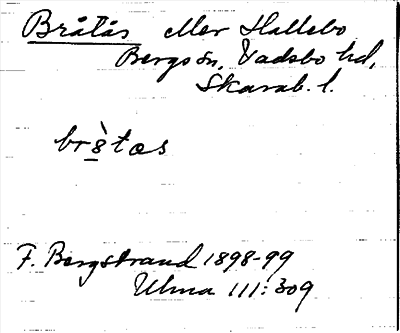 Bråtås eller Hallebo
Bergs sn, Vadsbo hd,
Skarab. l.
br8̱̀tas
F. Bergstrand 1898-99
Ulma 111:309